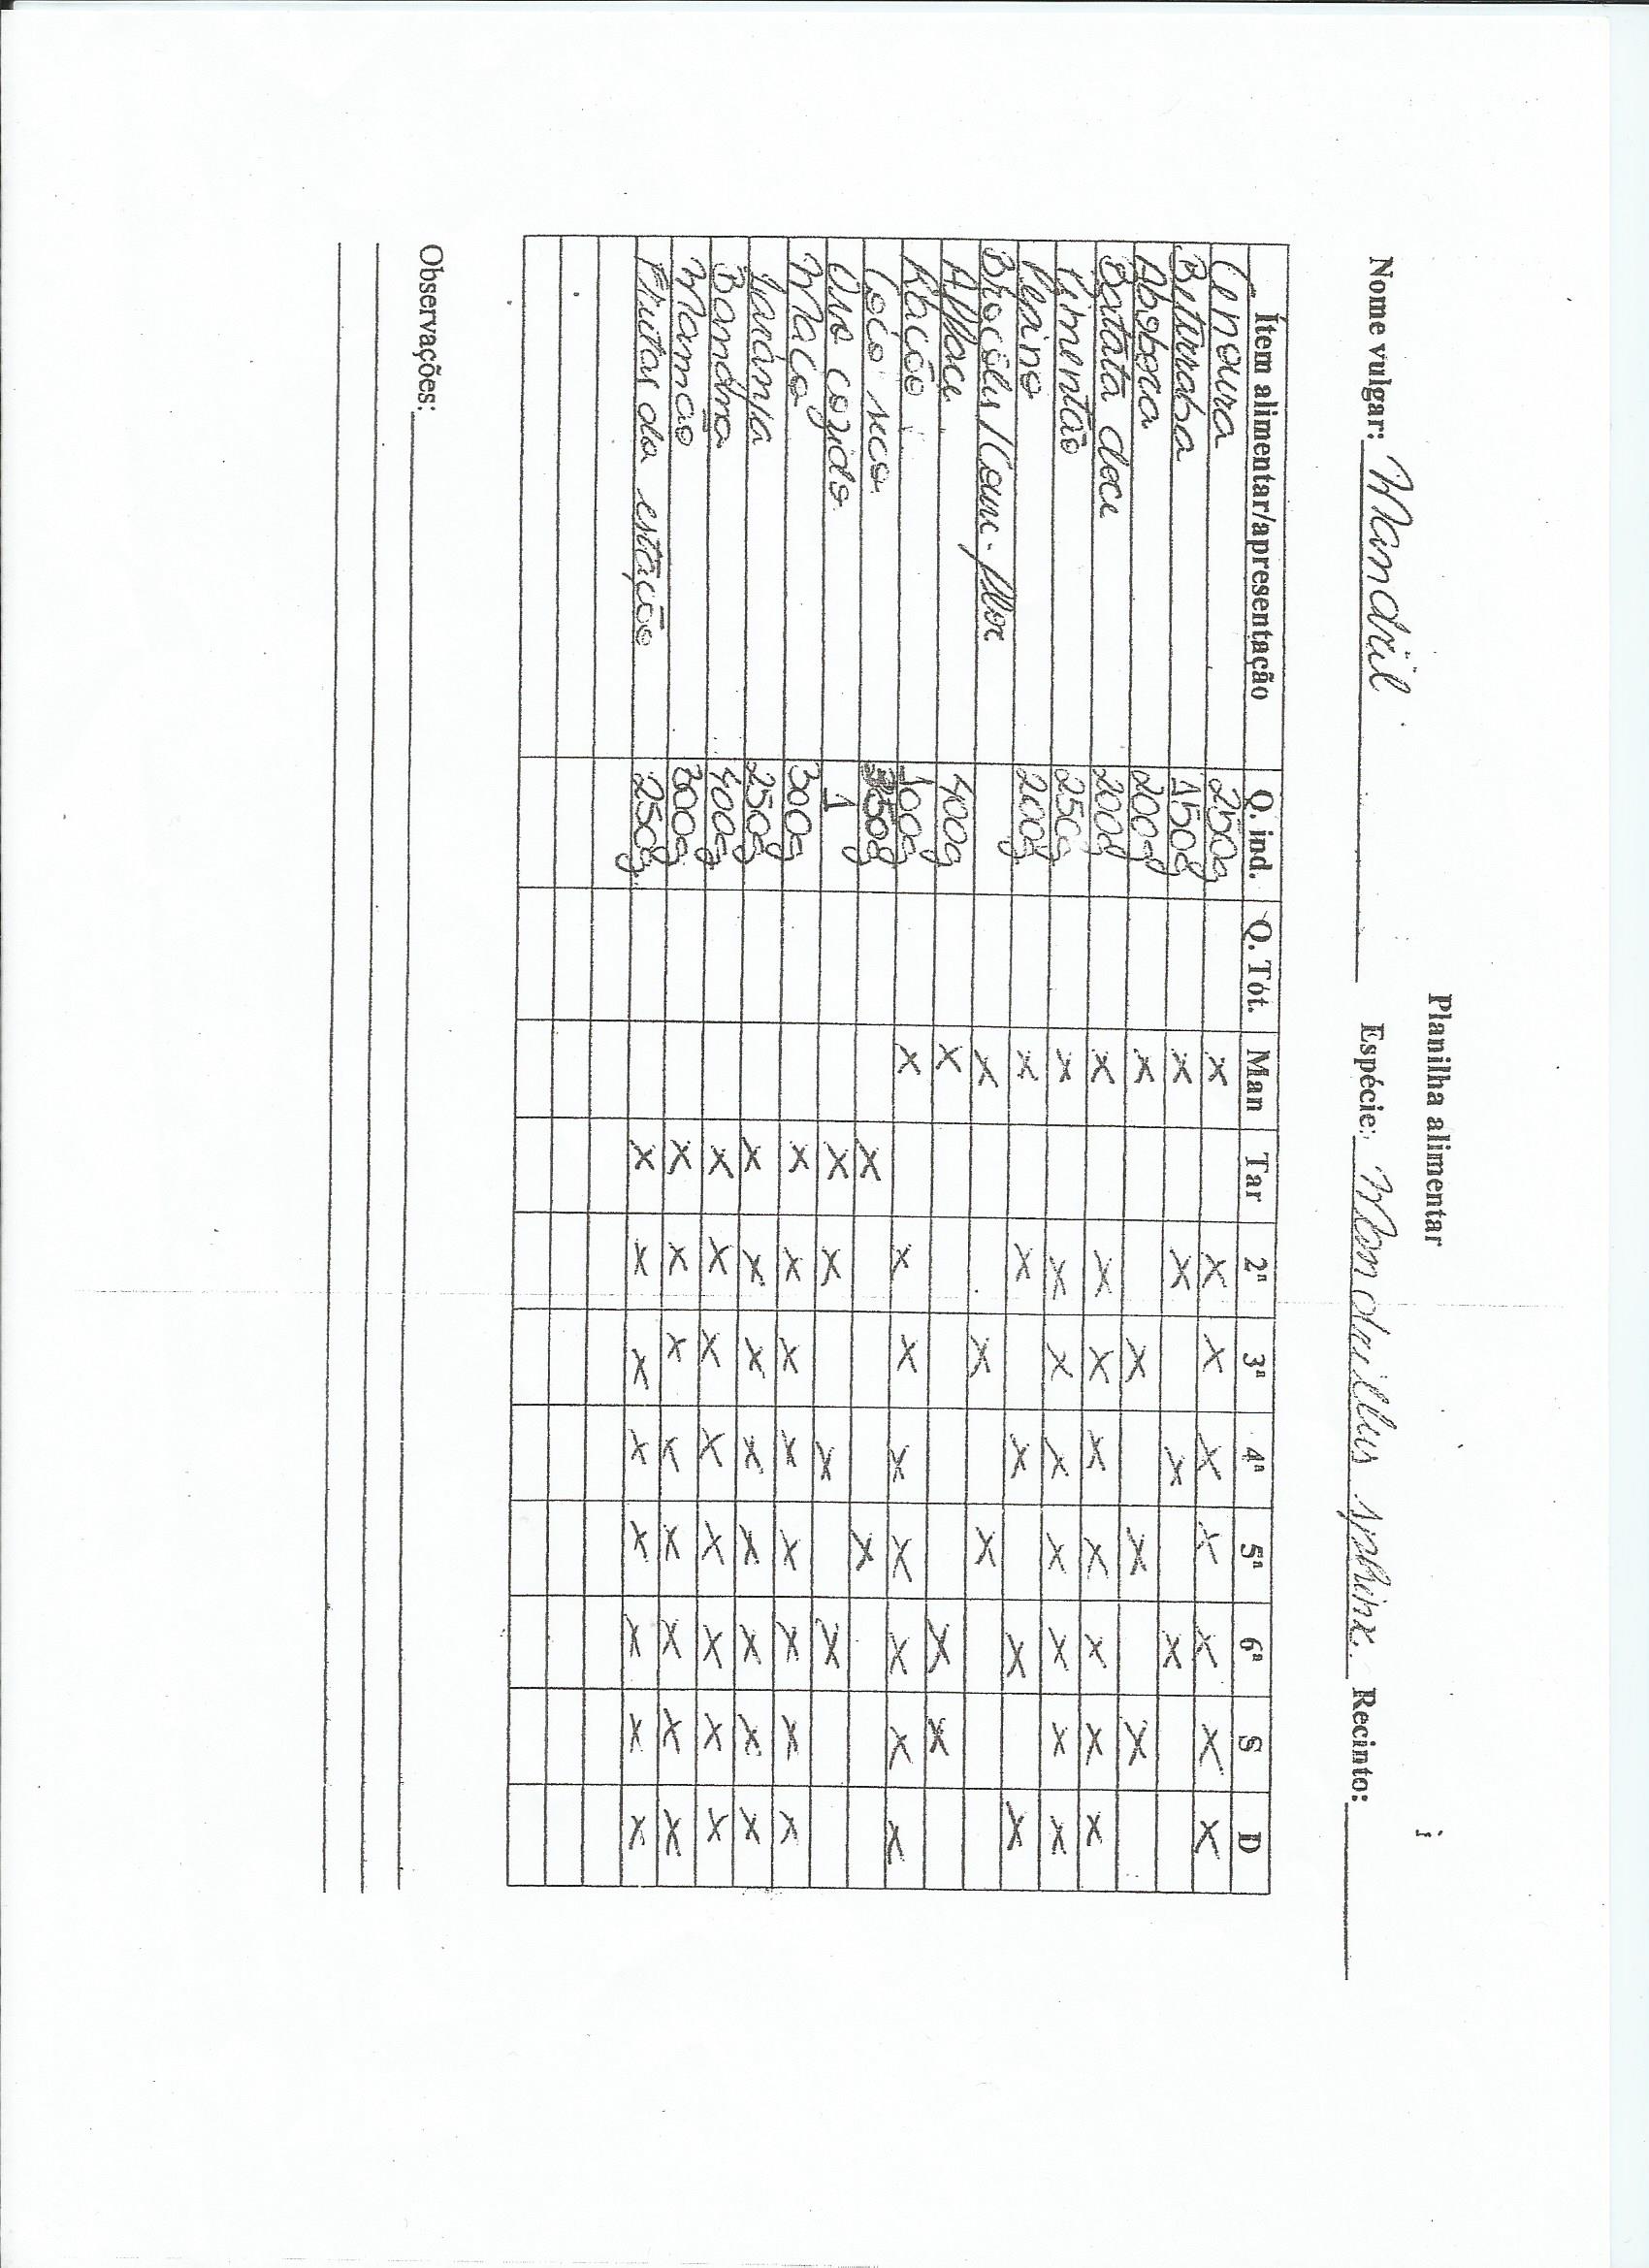 Planilha alimentar
Nome vulgar: Mandril Espécie: Mandrillus sphinx. Recinto:
Ítem alimentar/apresentação Q. ind. Q. Tot. Man Tar 2ª 3ª 4ª 5ª 6ª S D
Cenoura 250g X X X X X X X X
Beterraba 150g X X X X
Abobora 200g X X X X
Batata doce 200g X X X X X X X X
Pimentão 250g X X X X X X X X
Pepino 200g X X X X X
Brócolis/Couve-flor X X X
Alface 400g X X X
Ração 100g X X X X X X X X
Coco seco 350g X X
Ovo cozido 1 X X X X
Maça 300g X X X X X X X X
Laranja 250g X X X X X X X X
Banana 400g X X X X X X X X
Mamão 300g X X X X X X X X
Frutas da estação 250g X X X X X X X X
Observações: